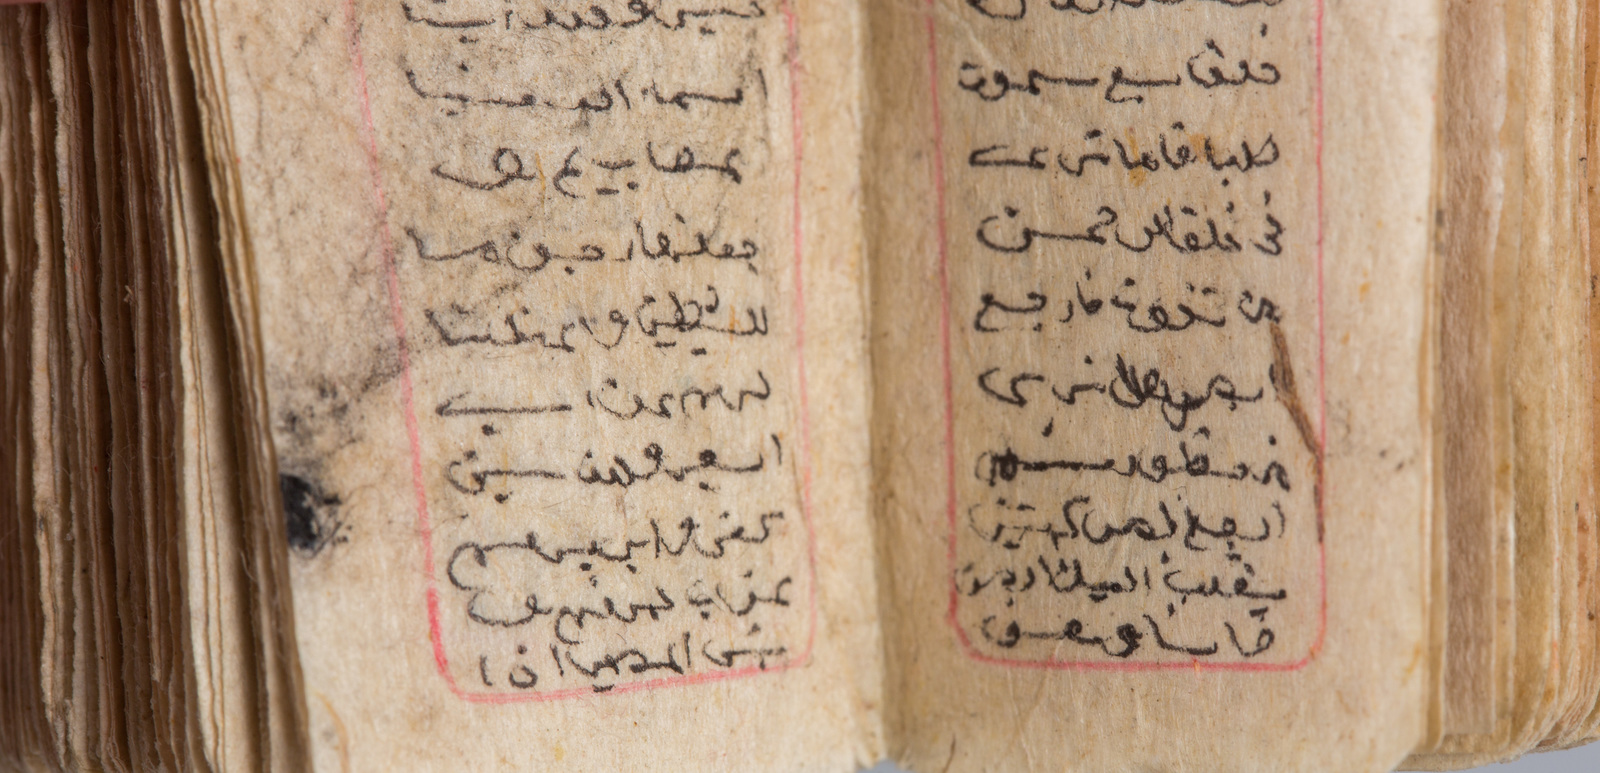 خلق سبع سموت
طباقا ما ترى
في خلق الرحمن
من تفوت فارجع
البصر هل ترى
من فطور ثم
ارجع البصر كرتين
ينقلب اليك البصر
خاسا وهو
ولقد زينا
السماء الدنيا
بمصابيح و
جعلنها رجوما
للشيطين واعتدنا
لهم عذاب
السعير وللذين
كفروا بربهم
عذاب جهنم و
بئس المصير اذا